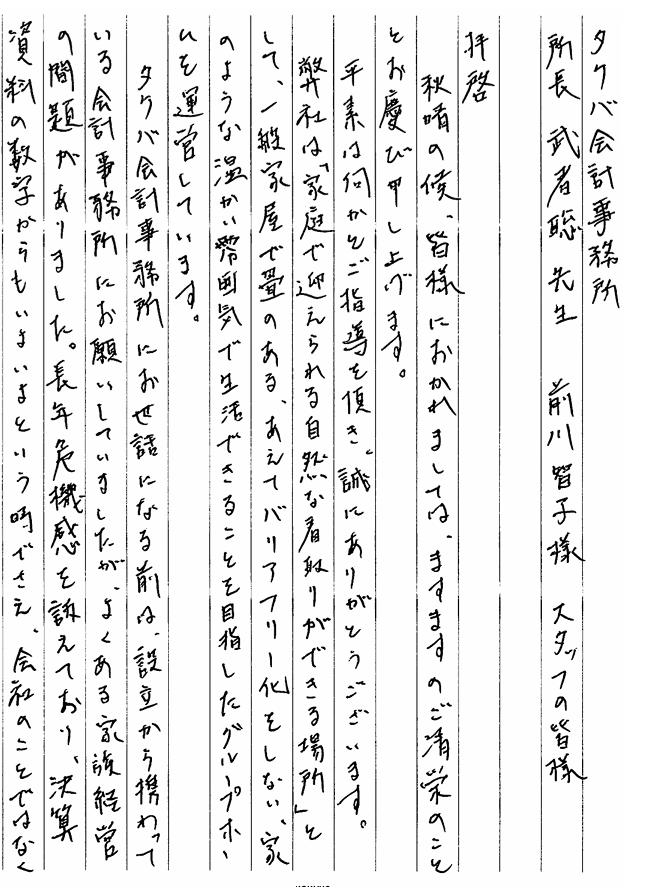 タクバ会計事務所
所長 武者聡 先生　前川智子様 スタッフの皆様
拝啓
秋晴の候、皆様におかれましては、ますますのご清栄のこと
とお慶び申し上げます。
平素は何かとご指導を頂き、誠にありがとうございます。
弊社は「家庭で迎えられる自然な看取りができる場所」と
して、一般家屋で畳のある、あえてバリアフリー化をしない、家
のような温かい雰囲気で生活できることを目指したグループホー
ムを運営しています。
タクバ会計事務所にお世話になる前は、設立から携わって
いる会計事務所にお願いしていましたが、よくある家族経営
の問題がありました。長年危機感を訴えており、決算
資料の数字からもいよいよという時でさえ、会社のことではなく